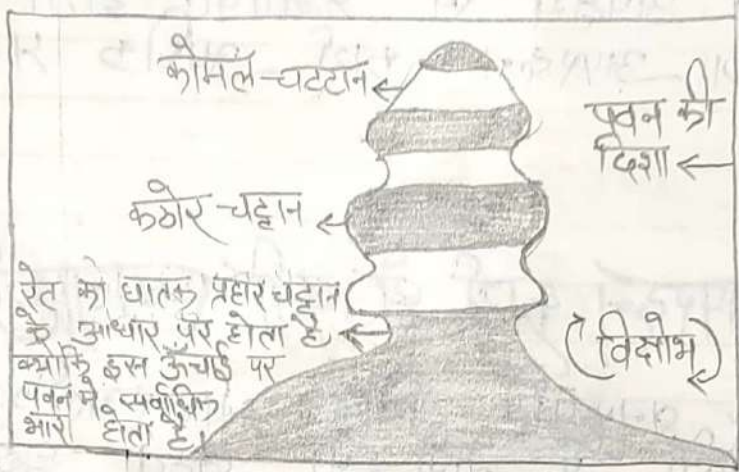 कोमल चटटान
पवन की
दिशा
कठोर चट्टान
रेत का घातक प्रहार चट्टान
के आधार पर होता है
क्योकि इस ऊँचाई पर
पवन मे सर्वाधिक
भार होता है।
(विक्षोभ)